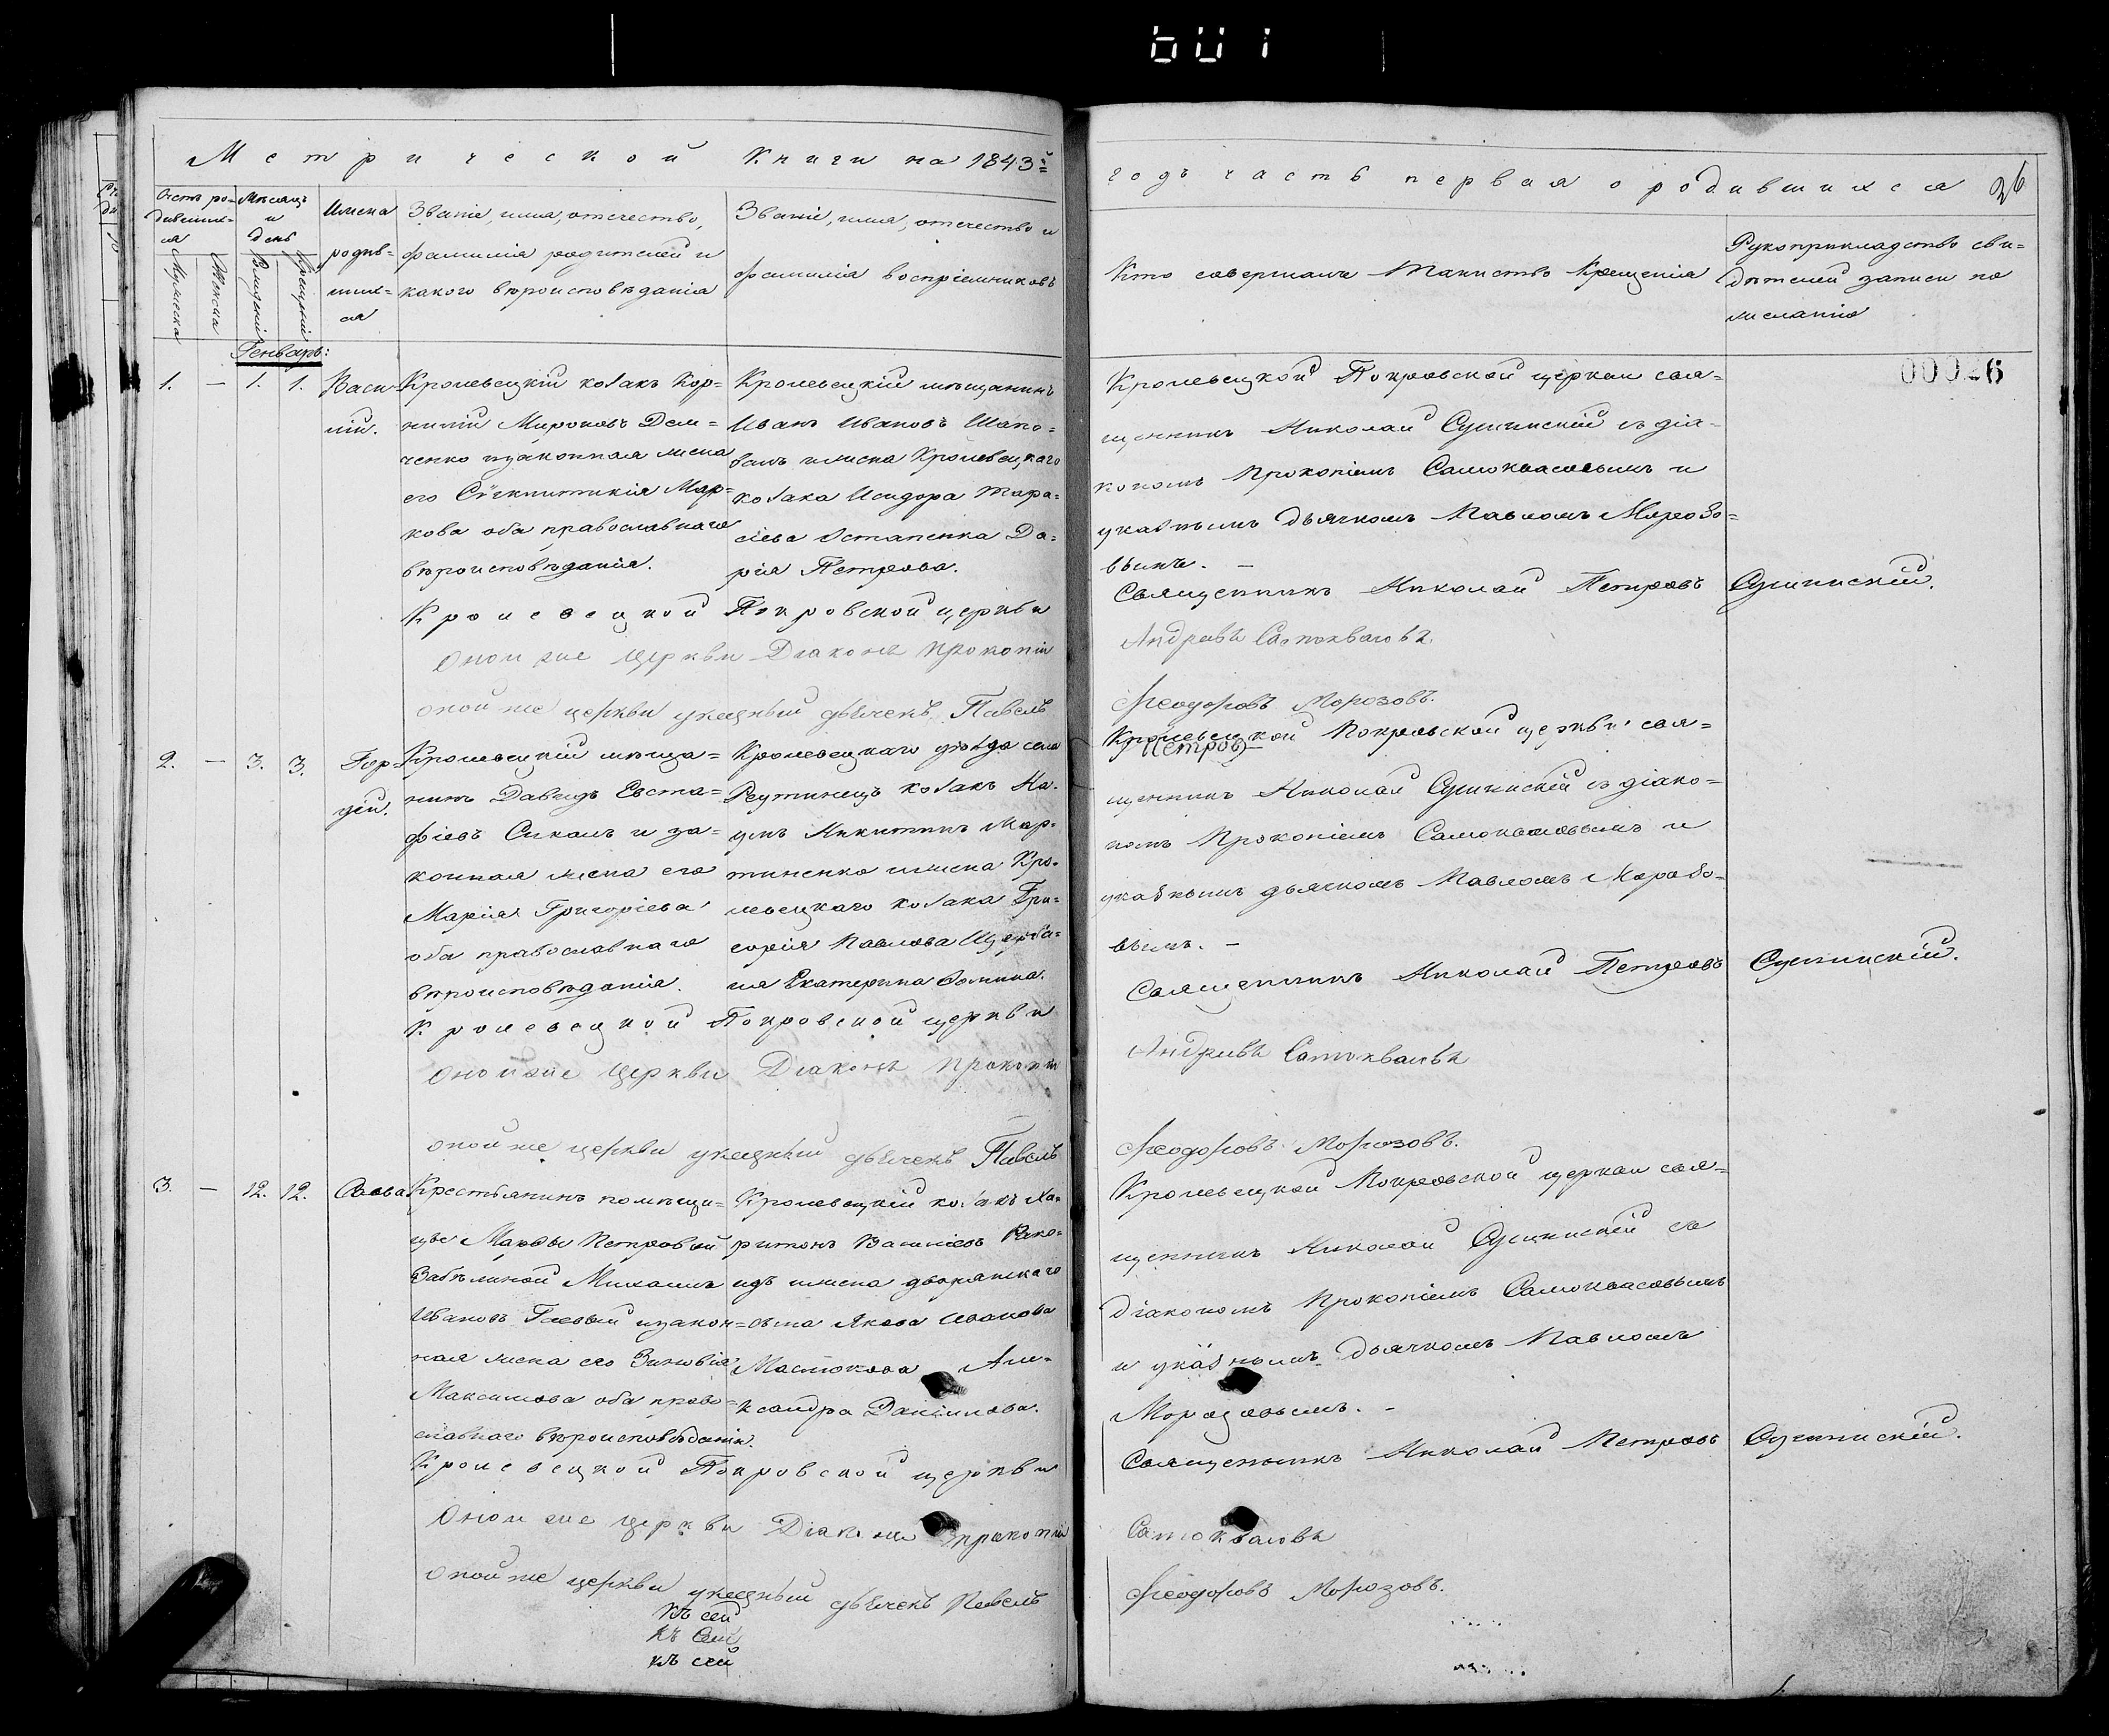 Метрической Книги на 1843й
годъ часть первая о родившихся 26
Счетъ ро-
дивших-
ся
Мужеска
Женска
Мѣсяцъ
и
день
Рожденія
Крещенія
Имена
родив-
ших-
ся
Званіе, имя, отечество,
фамилія родителей и
какого вѣроисповѣданія
Званіе, имя, отечество и
фамилія воспріемниковъ
Кто совершалъ таинство крещенія
Рукоприкладство сви-
дѣтелей записи по
желанію
Генварь:
00026
1. — 1. 1.
Васи-
лій.
Кролевецкій козакъ Кор-
нилій Мироновъ Дем-
ченко изаконная жена
его Сѵнклитикія Мар-
кова оба православнаго
вѣроисповѣданія.
Кролевецкій мѣщанинъ
Иванъ Ивановъ Шапо-
валъ ижена Кролевецкаго
козака Исидора Тара-
сіева Остапенка Да-
рія Петрова.
Кролевецкой Покровской церкви свя-
щенникъ Николай Сушинскій съ діа-
кономъ Прокопіемъ Самоквасовымъ и
указнымъ дьячкомъ Павломъ Морозо-
вымъ. —
Кролевецкой Покровской церкви Священникъ Николай Петровъ Сушинскій.
Оной же Церкви Діаконъ Прокопій Андреевъ Самоквасовъ
оной же церкви указный дьячекъ Павелъ Ѳеодоровъ Морозовъ.
2. — 3. 3.
Гор-
дій.
Кролевецкій мѣща-
нинъ Давидъ Евста-
фіевъ Сикалъ и за-
конная жена его
Марія Григоріева
оба православнаго
вѣроисповѣданія.
Кролевецкаго уѣзда села
Реутинецъ козакъ На-
умъ Никитинъ Мар-
тиненко ижена Кро-
левецкаго козака Гри-
горія Павлова Щерба-
ня Екатерина Фомина.
Кролевецкой Покровской церкви свя-
Петров
щенникъ Николай Сушинскій съ діако-
номъ Прокопіемъ Самоквасовымъ и
указнымъ дьячкомъ Павломъ Морозо-
вымъ. —
Кролевецкой Покровской церкви Священникъ Николай Петровъ Сушинскій.
Оной же Церкви Діаконъ Прокопій Андреевъ Самоквасовъ
оной же церкви указный дьячекъ Павелъ Ѳеодоровъ Морозовъ.
3. — 12. 12.
Савва
Крестьянинъ помѣщи-
цы Марѳы Петровой
Забѣлиной Михаилъ
Ивановъ Гаевый изакон-
ная жена его Зиновія
Максимова оба право-
славнаго вѣроисповѣданія.
Кролевецкій козакъ Ха-
ритонъ Василіевъ
ижена дворянскаго
сына Якова Иванова
Мастюкова Але-
ксандра Даніилова.
Кролевецкой Покровской церкви свя-
щенникъ Николай Сушинскій съ
діакономъ Прокопіемъ Самоквасовымъ
и указнымъ дьячкомъ Павломъ
Морозовымъ. —
Кролевецкой Покровской церкви Священникъ Николай Петровъ Сушинскій.
Оной же церкви Діаконъ Прокопій Самоквасовъ
оной же церкви указный дьячекъ Павелъ Ѳеодоровъ Морозовъ.
къ сей
къ сей
къ сей